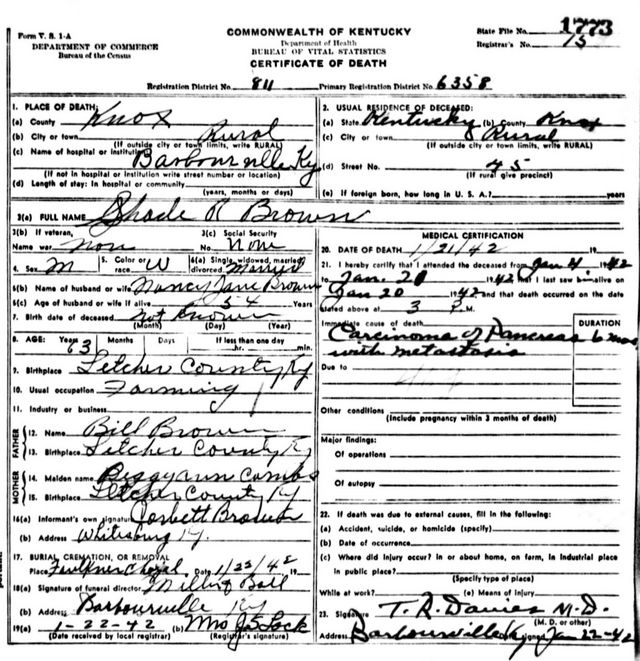 Form V. S. 1-A
DEPARTMENT OF COMMERCE
Bureau of the Census
COMMONWEALTH OF KENTUCKY
Department of Health
BUREAU OF VITAL STATISTICS
CERTIFICATE OF DEATH
State File No. 1773
Registrar's No. 15
Registration District No. 811 Primary Registration District No. 6358
1. PLACE OF DEATH:
(a) County Knox
(b) City or town Rural
(If outside city or town limits, write RURAL)
(c) Name of hospital or institution Barbourville Ky
(If not in hospital or institution write street number or location)
(d) Length of stay: In hospital or community
(years, months or days)
2. USUAL RESIDENCE OF DECEASED:
(a) State Kentucky (b) County Knox
(c) City or town Rural
(If outside city or town limits, write RURAL)
(d) Street No. 45
(If rural give precinct)
(e) If foreign born, how long in U. S. A.? years
3(a) FULL NAME Shade R Brown
3(b) If veteran, 3(c) Social Security
Name war non No. None
4. Sex M 5. Color or race W 6(a) Single, widowed, married, divorced Marryd
6(b) Name of husband or wife Nancy Jane Brown
6(c) Age of husband or wife if alive 54 Years
7. Birth date of deceased not known
(Month) (Day) (Year)
8. AGE: Years 63 Months Days If less than one day
hr. min.
9. Birthplace Letcher County Ky
10. Usual occupation Farming
11. Industry or business
FATHER
12. Name Bill Brown
13. Birthplace Letcher County Ky
MOTHER
14. Maiden name Peggyann Combs
15. Birthplace Letcher County Ky
16(a) Informant's own signature Corbett Brown
(b) Address Whitesburg Ky.
17. BURIAL, CREMATION, OR REMOVAL
Place Faulkner Chapel Date 1/22/42 19
18(a) Signature of funeral director Milburn Ball
(b) Address Barbourville Ky
19(a) 1-22-42 (b) Mrs J S Lock
(Date received by local registrar) (Registrar's signature)
MEDICAL CERTIFICATION
20. DATE OF DEATH 1/21/42 19
21. I hereby certify that I attended the deceased from Jan 4 1942
to Jan. 20 1942 that I last saw him alive on
Jan 20 1942 and that death occurred on the date
stated above at 3 P.M.
Immediate cause of death DURATION
Carcinoma of Pancreas 6 mos
with metastasis
Due to
Other conditions
(Include pregnancy within 3 months of death)
Major findings:
Of operations
Of autopsy
22. If death was due to external causes, fill in the following:
(a) Accident, suicide, or homicide (specify)
(b) Date of occurrence
(c) Where did injury occur? In or about home, on farm, in industrial place
in public place?
(Specify type of place)
While at work? (e) Means of injury
23. Signature T. R. Davies M.D.
(M. D. or other)
Address Barbourville Ky signed Jan 22-42